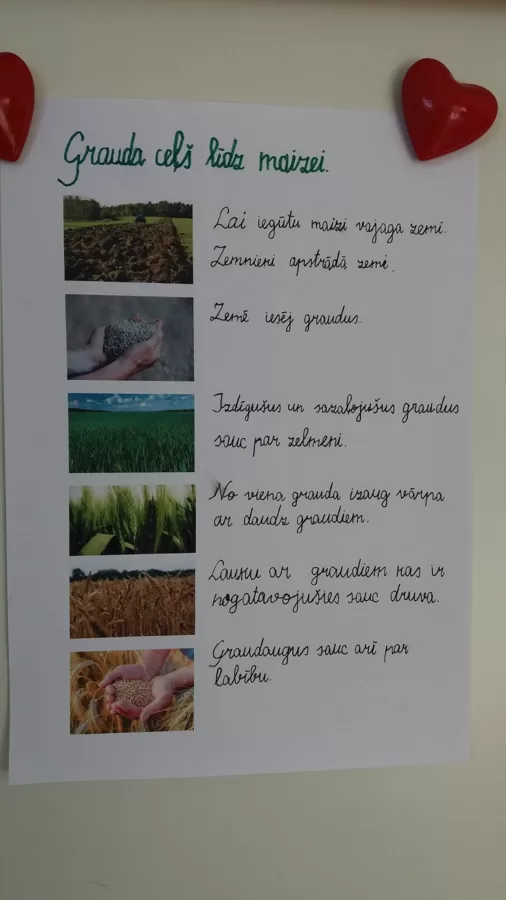 Grauda ceļš līdz maizei.
Lai iegūtu maizi vajaga zemi.
Zemnieni apstrādā zemi.
Zemē iesēj graudus.
Izdīgušus un sazaļojušus graudus
sauc par zelmeni.
No viena grauda izaug vārpa
ar daudz graudiem.
Lauku ar graudiem kas ir
nogatavojušies sauc druva.
Graudaugus sauc arī par
labību.